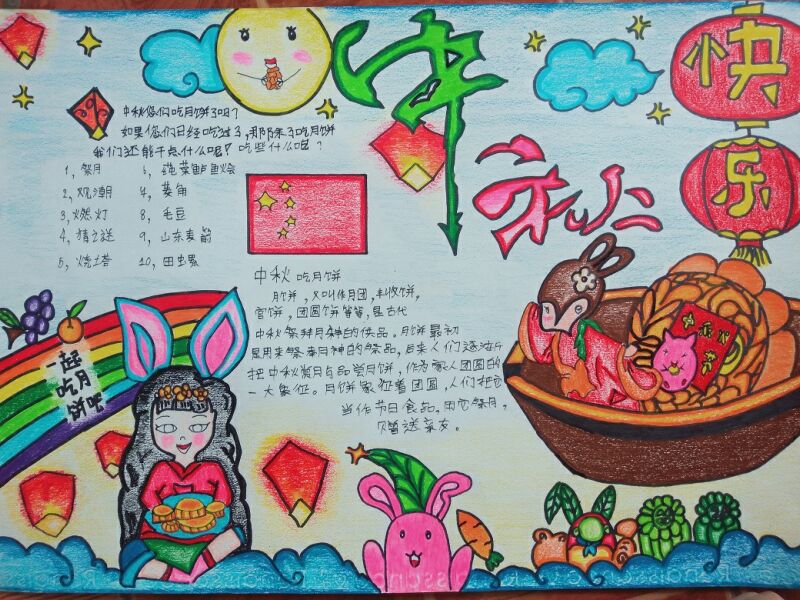 中秋
快乐
中秋您们吃月饼了吗?
如果您们已经吃过了,那除了吃月饼
我们还能干点什么呢?吃些什么呢?
1, 祭月
2, 观潮
3, 燃灯
4, 猜之谜
5, 烧塔
莼菜鲈鱼烩
菱角
8, 毛豆
9, 山东麦箭
10, 田虫螺
中秋 吃月饼
月饼,又叫月团,丰收饼,
宫饼,团圆饼等等,是古代
中秋祭拜月神的供品。月饼最初
是用来祭奉月神的祭品,后来人们逐渐
把中秋赏月与品尝月饼,作为家人团圆的
一大象征。月饼象征着团圆,人们把它
当作节日食品,用它祭月,
赠送亲友。
一起
吃月
饼吧